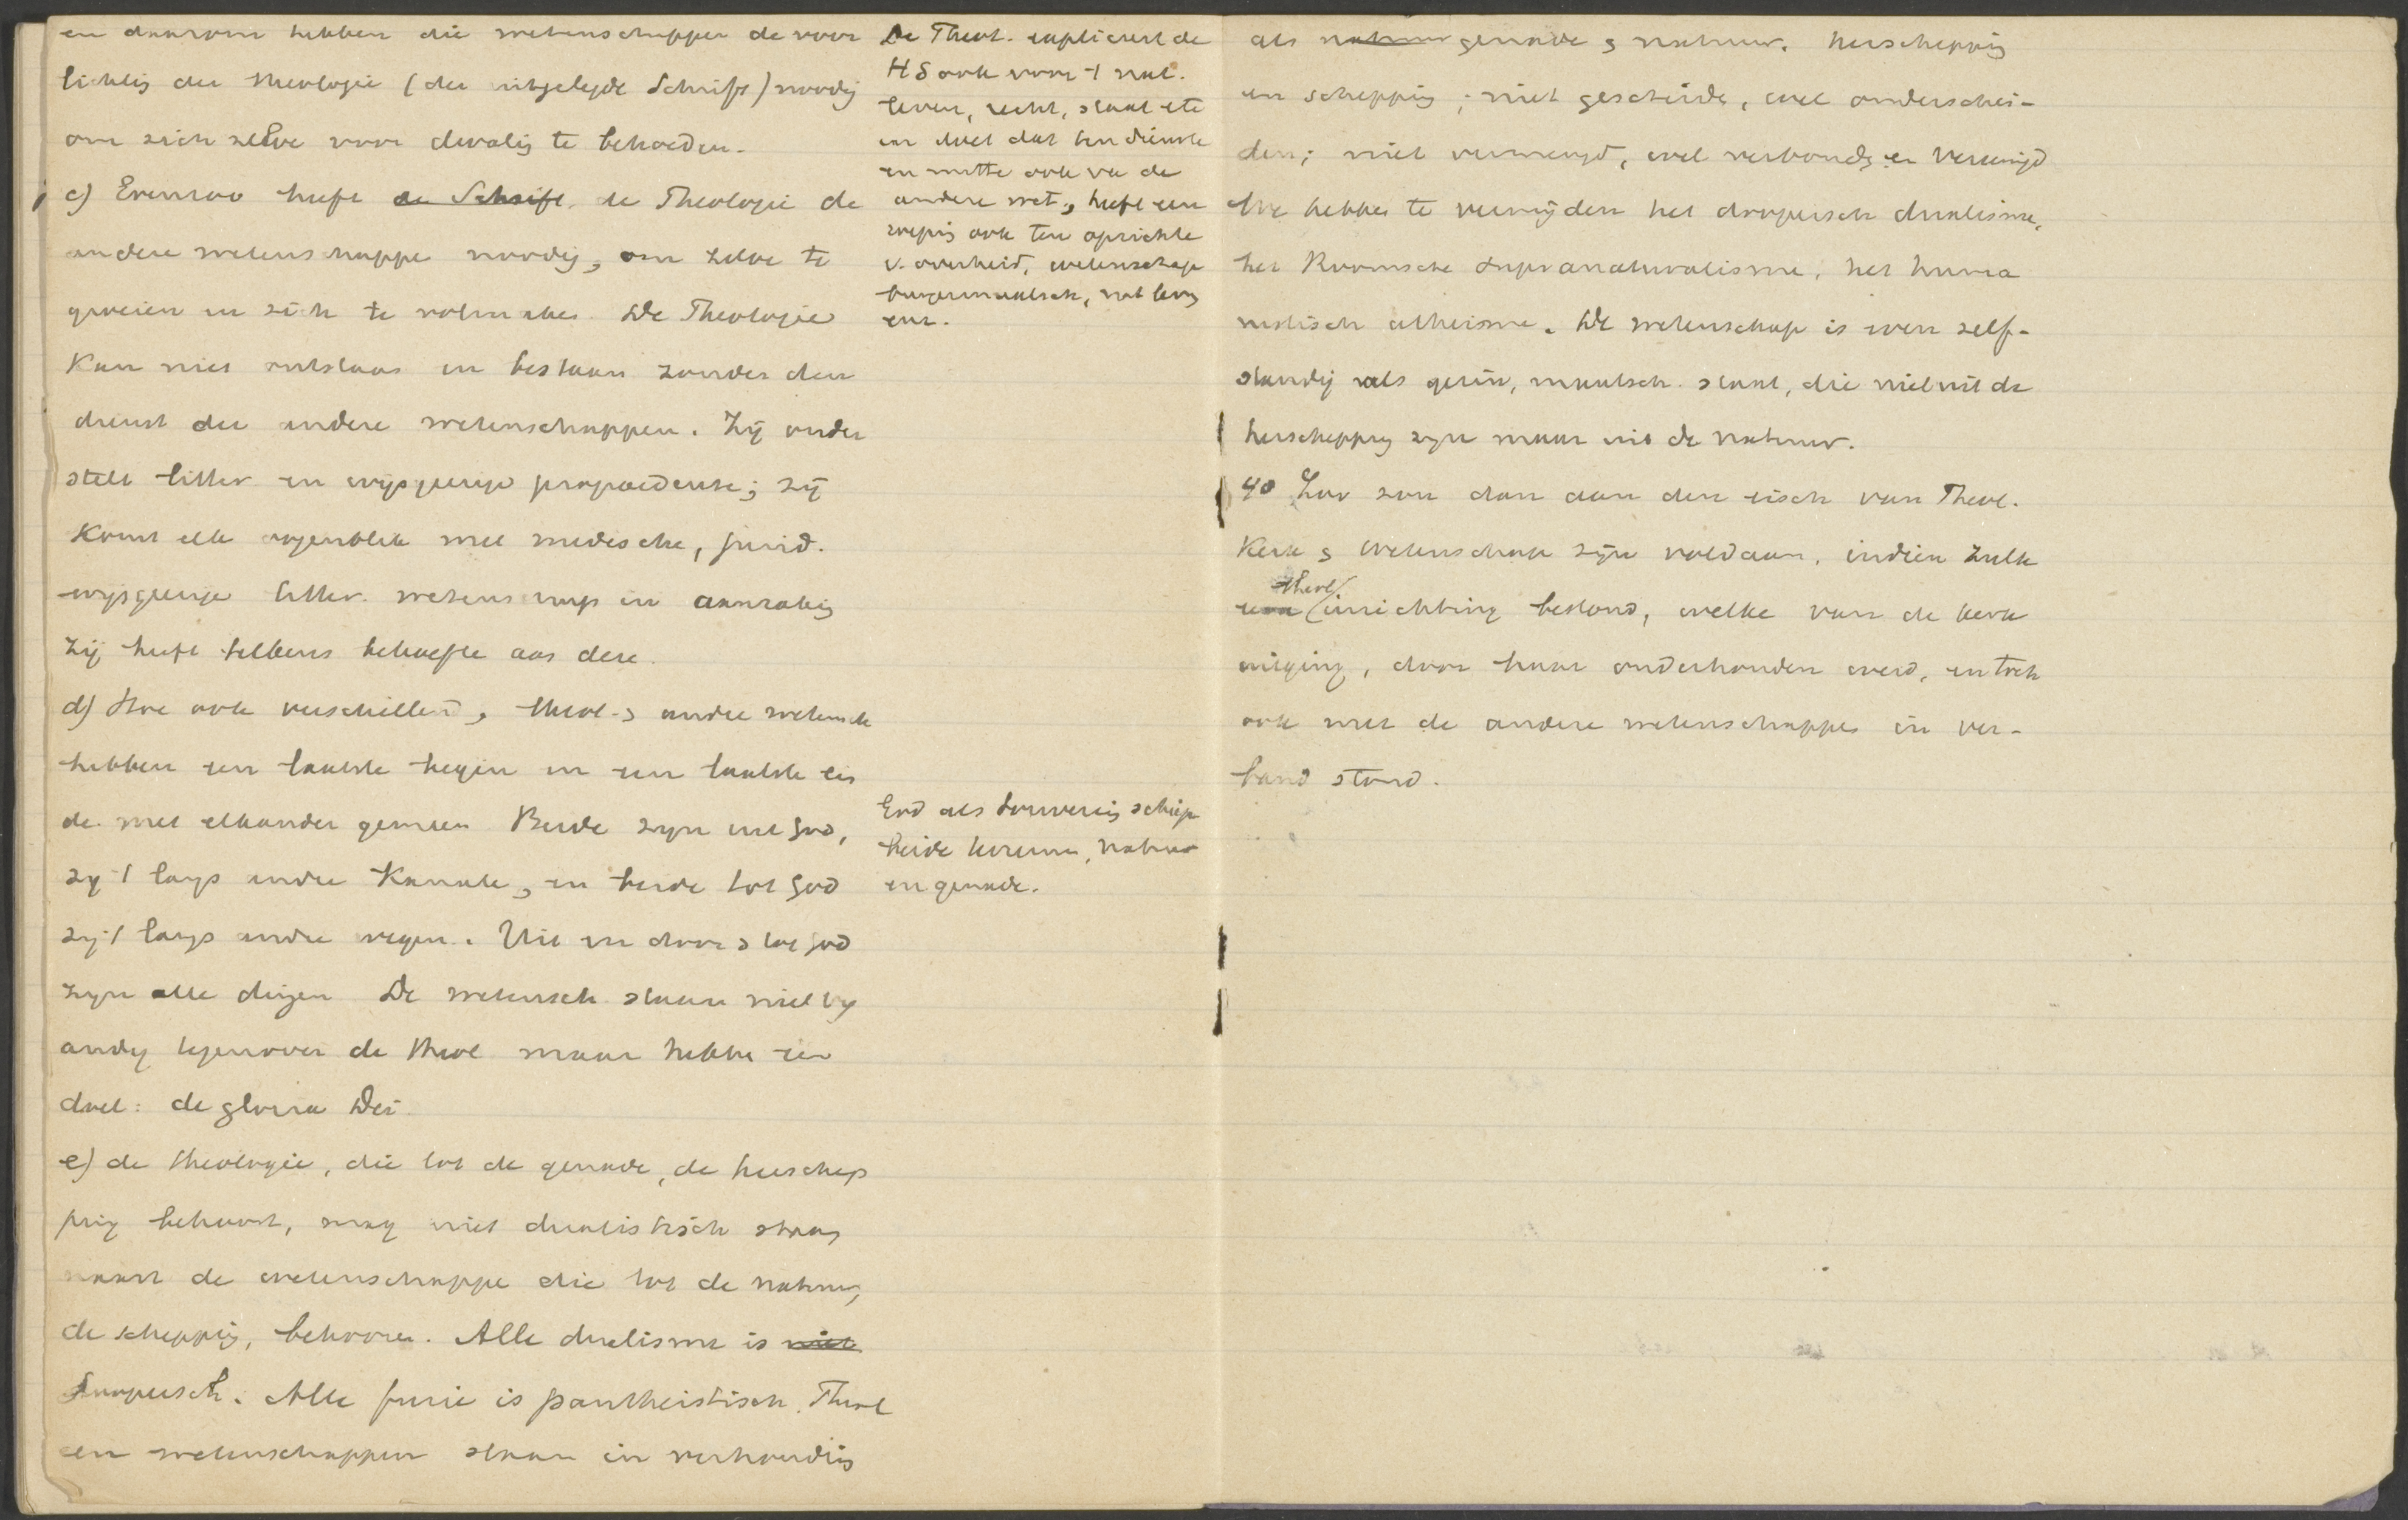 en daarom hebben die wetenschappen de voor
lichtig der theologie (der uitgelegde Schrift) noodig
om zich zelve voor dwalig te behoeden.
c) Evenzoo heeft de Schrift, de Theologie de
andere wetenschappe noodig, om zelve te
groeien en zich te volmake. De Theologie
kan niet ontstaan en bestaan zonder den
dienst der andere wetenschappen. Zij onder
stelt litter. en wijsgeerige propaedeuse; zij
komt elk oogenblik met medische, jurid.
wijsgeerige litter. wetenschap in aanrakig
Zij heeft telkens behoefte aan deze.
d) Hoe ook verschillend, theol. en andere wetensch
hebben een laatste begin en een laatste ein
de met elkander gemeen. Beide zijn uit God,
zij 't langs andre kanale, en beide tot God
zij 't langs andre wegen. Uit en door en tot God
zijn alle dingen. De wetensch. staan niet vij
andig tegenover de theol maar hebbe een
doel: de gloria Dei.
e) de theologie, die tot de genade, de herschep
ping behoort, mag niet dualistisch staan
naast de wetenschappe die tot de natuur,
de scheppig, behooren. Alle dualisme is niet
Doopersch. Alle fusie is pantheistisch. Theol
en wetenschappen staan in verhoudig
De Theol. expliceert de
HS ook voor 't nat.
leven, recht, staat etc
en doet dat ten dienste
en nutte ook van de
andere wet., heeft een
roepig ook ten opzichte
v. overheid, wetenschap
burgermaatsch, nat. leven
enz.
God als Souverein schiep
beide terreinen, natuur
en genade.
als natuur genade en natuur. herscheppig
en scheppig; niet gescheide, wel onderschei-
den; niet vermengd, wel verbonden en vereenigd
We hebben te vermijden het doopersch dualisme,
het Roomsche supranaturalisme, het huma
nistisch atheisme. De wetenschap is even zelf-
standig als gezin, maatsch. staat, die niet uit de
herschepping zijn maar uit de natuur.
4º Zoo zou dan aan den eisch van Theol.
Kerk en wetenschap zijn voldaan, indien zulk
een theol inrichting bestond, welke van de kerk
uitging, door haar onderhouden werd, en toch
ook met de andere wetenschappen in ver-
band stond.